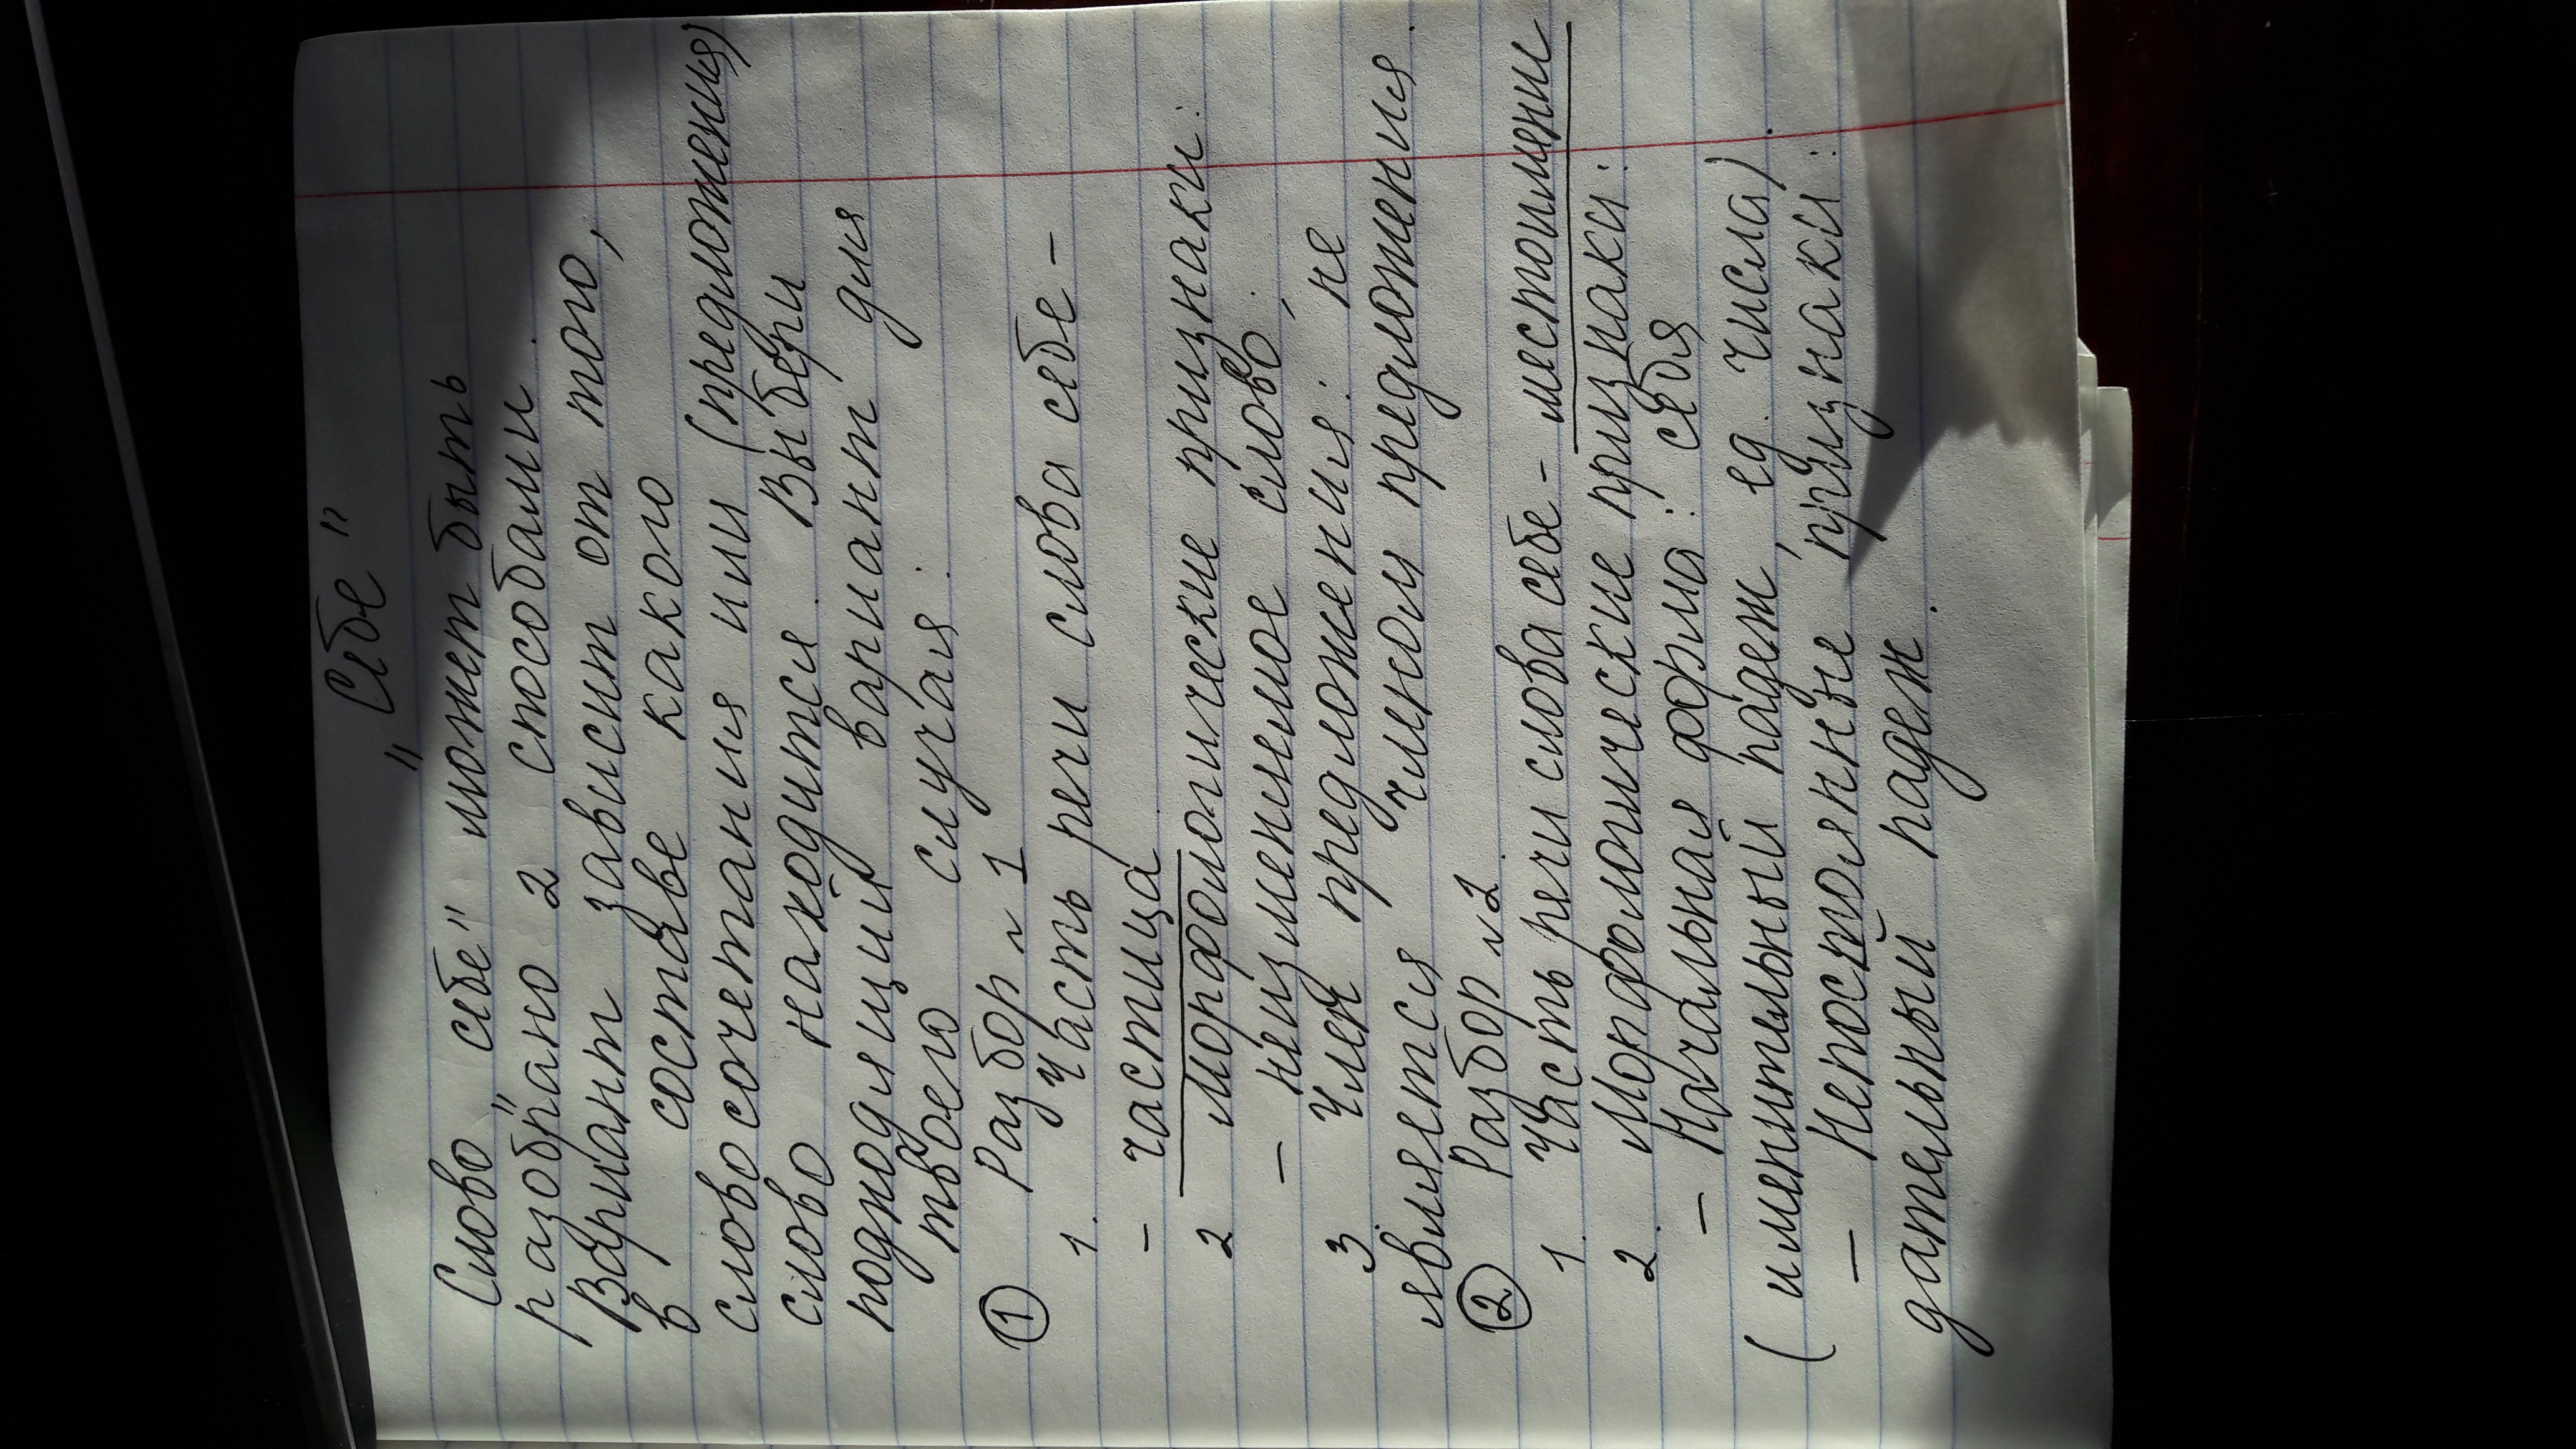 "Себе"
Слово "себе" может быть
разобрано 2 способами.
Вариант зависит от того,
в составе какого
словосочетания или (предложения)
слово находится. Выбери
подходящий вариант для
твоего случая:
① Разбор № 1
1. Часть речи слова себе -
- частица
2 Морфологические признаки:
- неизменяемое слово.
3 Член предложения: , не
является членом предложения.
② Разбор № 2.
1. Часть речи слова себе - местоимени
2. Морфологические признаки:
- Начальная форма: себя
(именительный падеж, ед. числа).
- Непостоянные признаки:
дательный падеж.